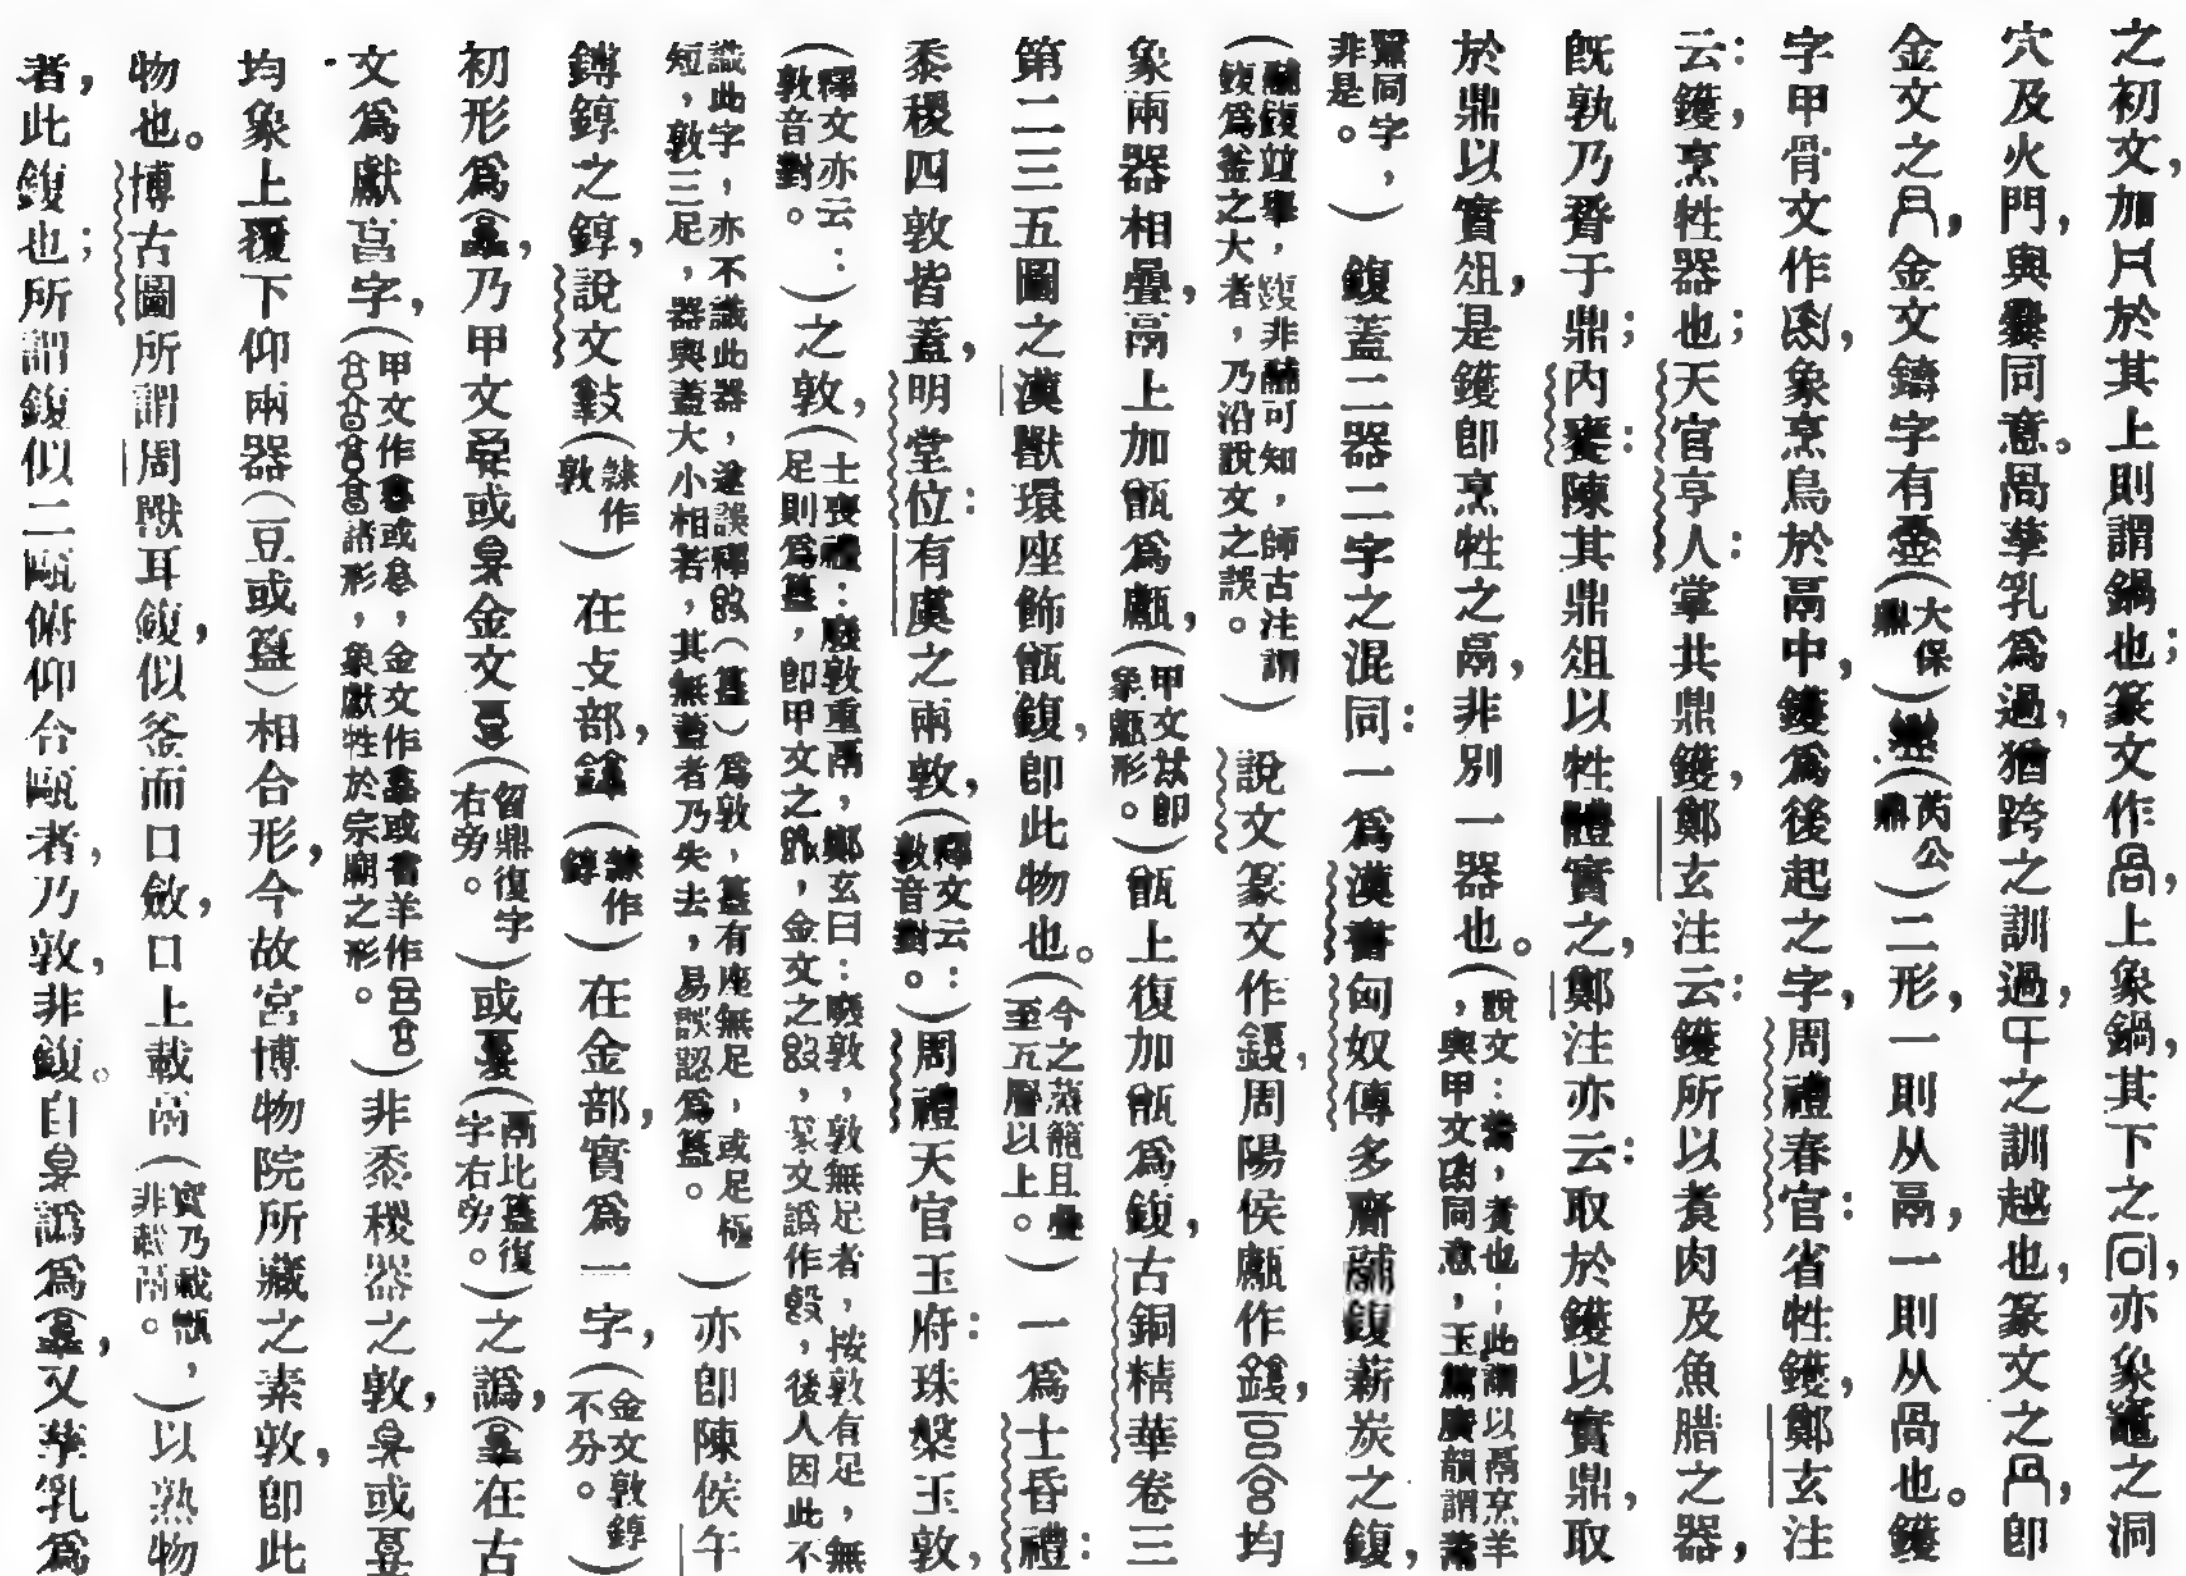 之初文，加於其上則謂鍋也；篆文作，上象鍋，其下之，亦象竈之洞
穴及火門，與爨同意。咼孳乳爲過，猶跨之訓過，之訓越也，篆文之，卽
金文之，金文鑄字有（大保鼎）（芮公鼎）二形，一則从鬲，一則从咼也。鑊
字甲骨文作，象烹鳥於鬲中，鑊爲後起之字，周禮春官：省牲鑊，鄭玄注
云：鑊，烹牲器也；天官亨人：掌共鼎鑊，鄭玄注云：鑊所以煮肉及魚腊之器，
旣孰乃脀于鼎；內饔：陳其鼎俎以牲體實之，鄭注亦云：取於鑊以實鼎，取
於鼎以實俎，是鑊卽烹牲之鬲，非別一器也。（說文：，煮也；此謂以鬲烹羊，與甲文同意，玉篇廣韻謂
同字，非是。）鍑蓋二器二字之混同：一爲漢書匈奴傳多齎鬴鍑薪炭之鍑，
（鬴鍑並舉，鍑非鬴可知，師古注謂鍑爲釜之大者，乃沿說文之誤。）說文篆文作鍑，周陽侯甗作鍑，均
象兩器相疊，鬲上加甑爲甗，（甲文卽象甗形。）甑上復加甑爲鍑，古銅精華卷三
第二三五圖之漢獸環座飾甑鍑，卽此物也。（今之蒸籠且疊至五層以上。）一爲士昏禮：
黍稷四敦皆蓋，明堂位：有虞之兩敦，（釋文云：敦音對。）周禮天官玉府：珠槃玉敦，
（釋文亦云：敦音對。）之敦，（士喪禮：廢敦重鬲，鄭玄曰：廢敦，敦無足者，按敦有足，無足則爲簋，卽甲文之，金文之，篆文譌作，後人因此不
識此字，亦不識此器，遂誤釋（簋）爲敦，簋有座無足，或足極短，敦三足，器與蓋大小相若，其無蓋者乃失去，易誤認爲簋。）亦卽陳侯午
鐏錞之錞，說文（隸作敦）在攴部，（隸作錞）在金部，實爲一字，（金文敦錞不分。）
初形爲，乃甲文或金文（智鼎復字右旁。）或（鬲比簋復字右旁。）之譌，在古
文爲獻享字，（甲文作或，金文作或省羊作諸形，象獻牲於宗廟之形。）非黍稷器之敦，或
均象上覆下仰兩器（豆或簋）相合形，今故宮博物院所藏之素敦，卽此
物也。博古圖所謂周獸耳鍑，似釜而口斂，口上載鬲（實乃載甑，非載鬲。）以熟物
者，此鍑也；所謂鍑似二甌俯仰合甌者，乃敦，非鍑。自譌爲，又孳乳爲